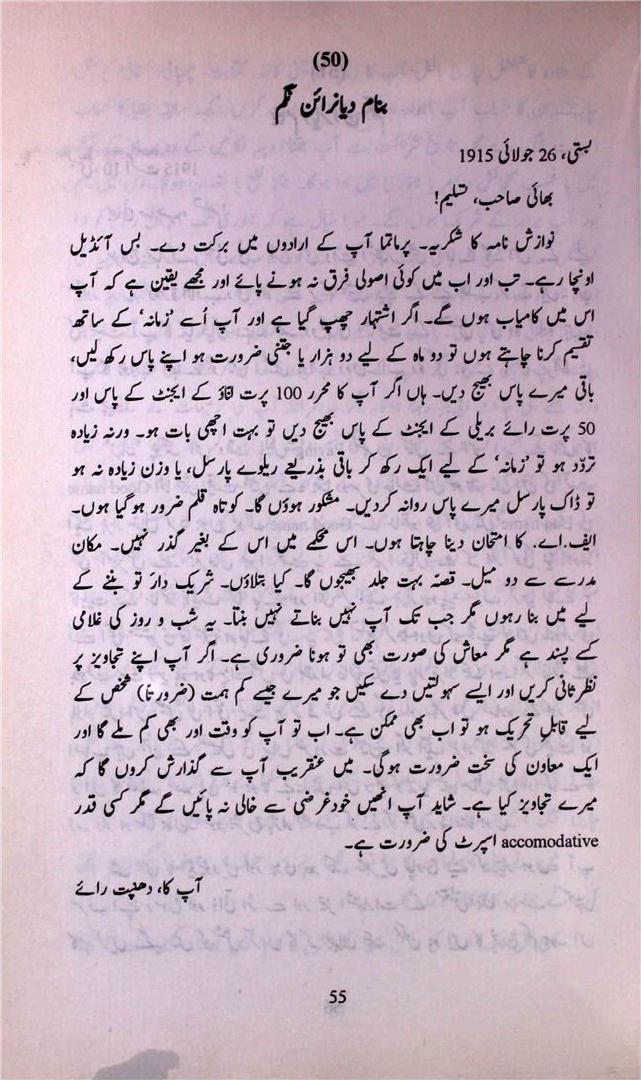 (50)
بنام دیانرائن نگم
بستی، 26 جولائی 1915
بھائی صاحب، تسلیم!
نوازش نامہ کا شکریہ۔ پرماتما آپ کے ارادوں میں برکت دے۔ بس آئڈیل
اونچا رہے۔ تب اور اب میں کوئی اصولی فرق نہ ہونے پائے اور مجھے یقین ہے کہ آپ
اس میں کامیاب ہوں گے۔ اگر اشتہار چھپ گیا ہے اور آپ اُسے ’زمانہ‘ کے ساتھ
تقسیم کرنا چاہتے ہوں تو دو ماہ کے لیے دو ہزار یا جتنی ضرورت ہو اپنے پاس رکھ لیں،
باقی میرے پاس بھیج دیں۔ ہاں اگر آپ کا محرر 100 پرت اناؤ کے ایجنٹ کے پاس اور
50 پرت رائے بریلی کے ایجنٹ کے پاس بھیج دیں تو بہت اچھی بات ہو۔ ورنہ زیادہ
تردّد ہو تو ’زمانہ‘ کے لیے ایک رکھ کر باقی بذریعے ریلوے پارسل، یا وزن زیادہ نہ ہو
تو ڈاک پارسل میرے پاس روانہ کردیں۔ مشکور ہوؤں گا۔ کوتاہ قلم ضرور ہوگیا ہوں۔
ایف.اے. کا امتحان دینا چاہتا ہوں۔ اس محکمے میں اس کے بغیر گذر نہیں۔ مکان
مدرسے سے دو میل۔ قصّہ بہت جلد بھیجوں گا۔ کیا بتلاؤں۔ شریک دار تو بننے کے
لیے میں بنا رہوں مگر جب تک آپ نہیں بناتے نہیں بنتا۔ یہ شب و روز کی غلامی
کسے پسند ہے مگر معاش کی صورت بھی تو ہونا ضروری ہے۔ اگر آپ اپنے تجاویز پر
نظرثانی کریں اور ایسے سہولتیں دے سکیں جو میرے جیسے کم ہمت (ضرورتاً) شخص کے
لیے قابلِ تحریک ہو تو اب بھی ممکن ہے۔ اب تو آپ کو وقت اور بھی کم ملے گا اور
ایک معاون کی سخت ضرورت ہوگی۔ میں عنقریب آپ سے گذارش کروں گا کہ
میرے تجاویز کیا ہے۔ شاید آپ انھیں خودغرضی سے خالی نہ پائیں گے مگر کسی قدر
accomodative اسپرٹ کی ضرورت ہے۔
آپ کا، دھنپت رائے
55